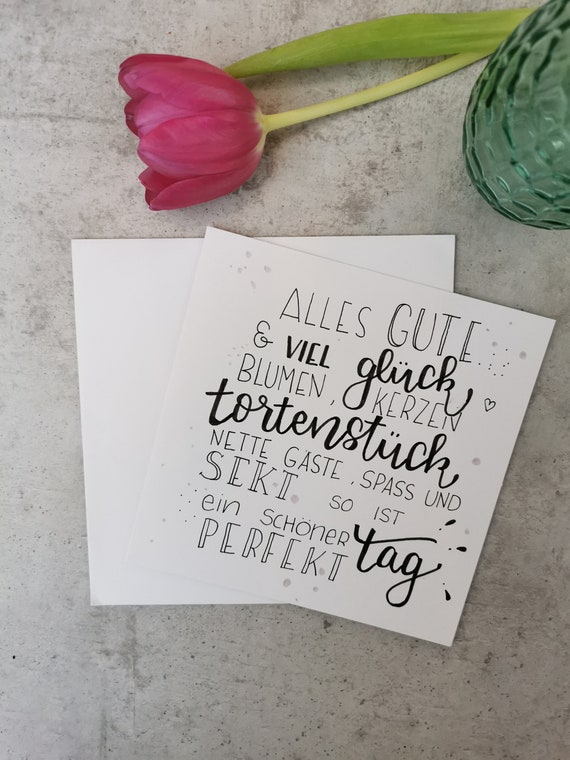 ALLES GUTE
& VIEL glück
BLUMEN, KERZEN
tortenstück
NETTE GÄSTE, SPASS UND
SEKT SO IST
ein SCHÖNER tag
PERFEKT